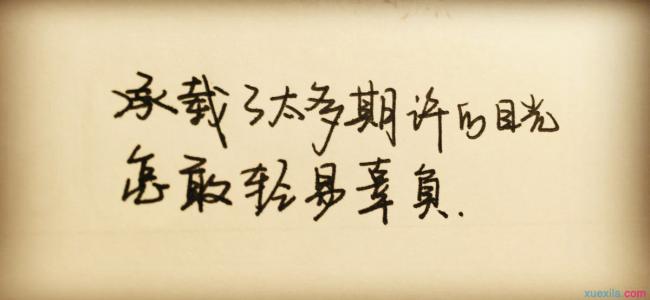 承载了太多期许的目光
怎敢轻易辜负.
xuexila.com